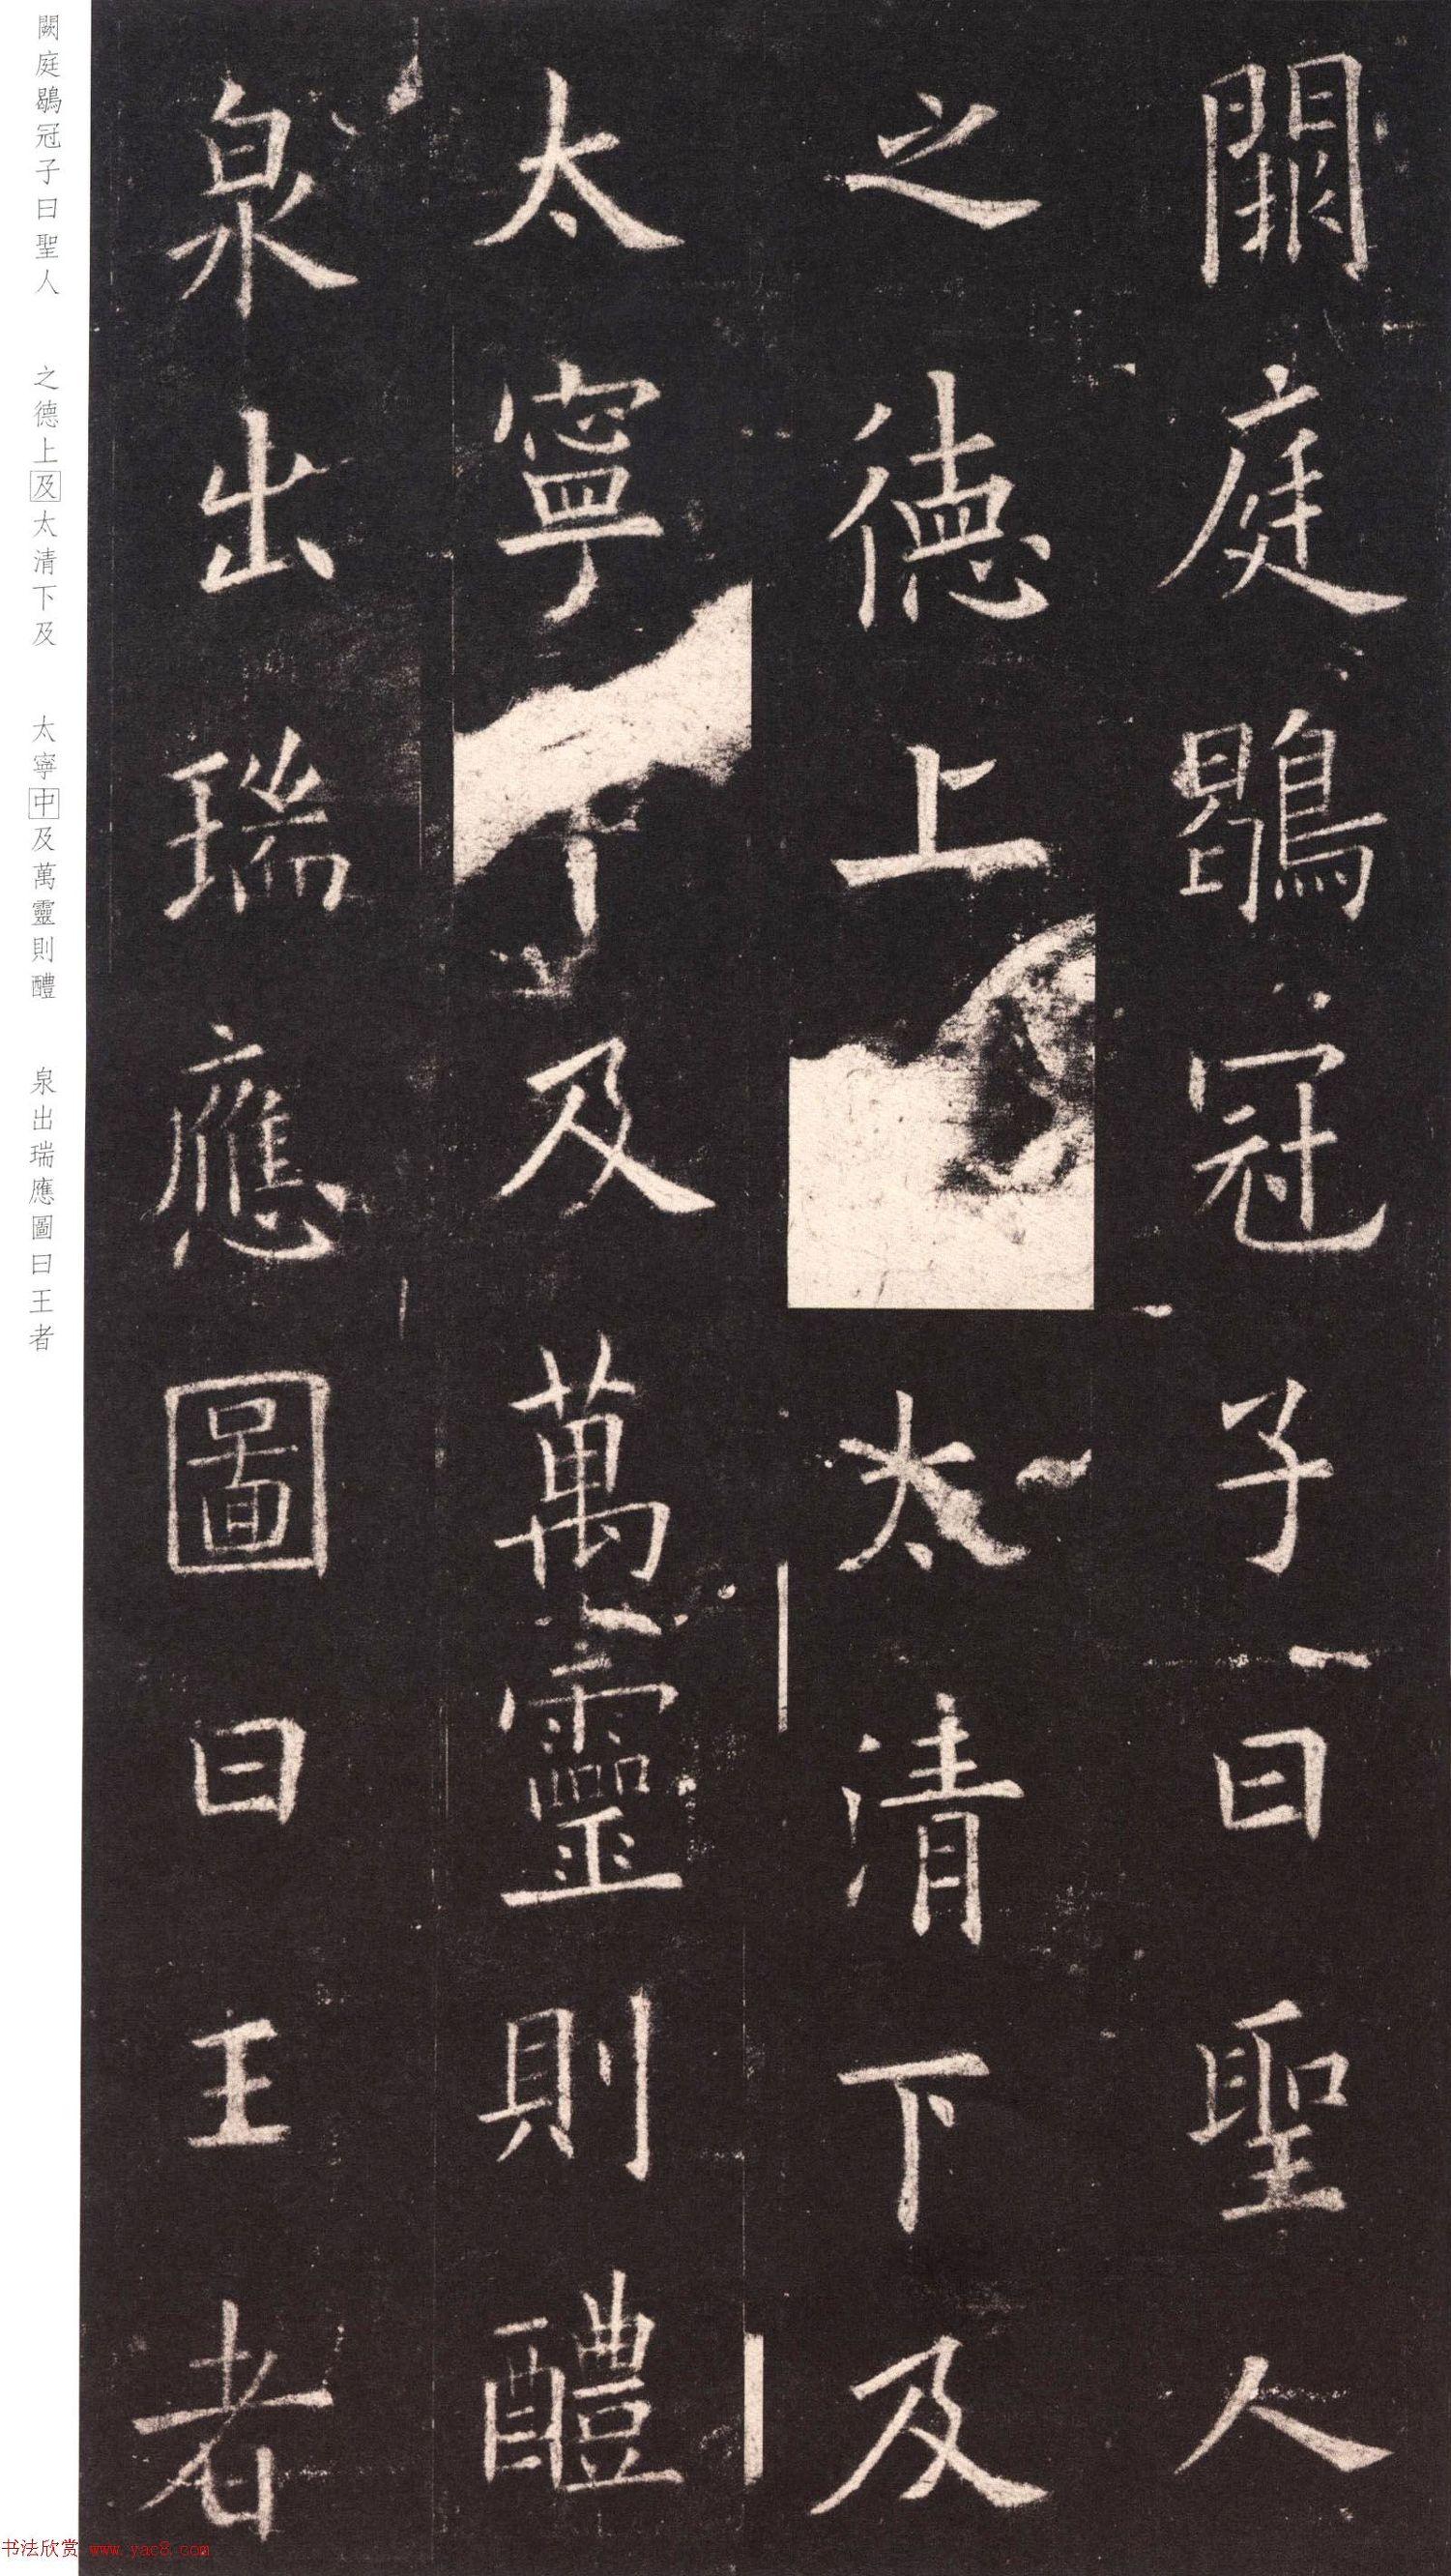 闕庭鶡冠子曰聖人
之德上太清下及
太寧及萬靈則醴
泉出瑞應圖曰王者
闕庭鶡冠子曰聖人 之德上及太清下及 太寧中及萬靈則醴 泉出瑞應圖曰王者
书法欣赏 www.yac8.com